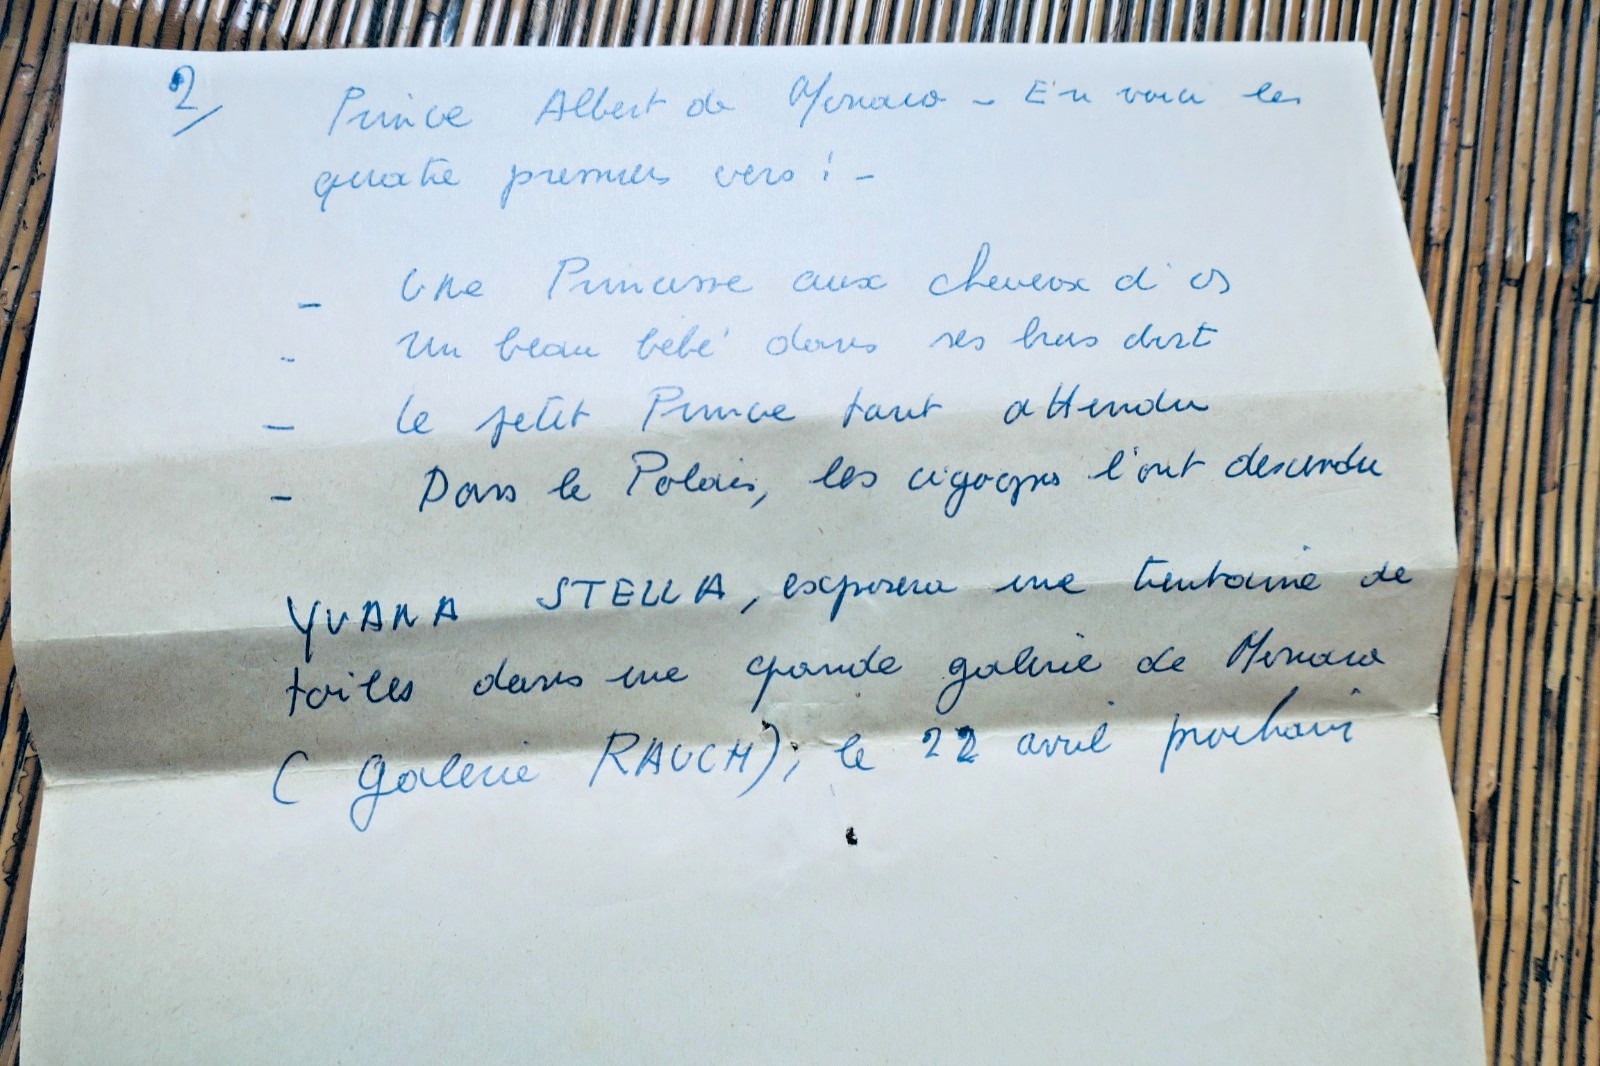 2/ Prince Albert de Monaco - En voici les
quatre premiers vers : -
- Une Princesse aux cheveux d'or
- Un beau bébé dans ses bras dort
- Le petit Prince tant attendu
- Dans le Palais, les cigognes l'ont descendu
YVANA STELLA, exposera une trentaine de
toiles dans une grande galerie de Monaco
( Galerie RAUCH), le 22 avril prochain